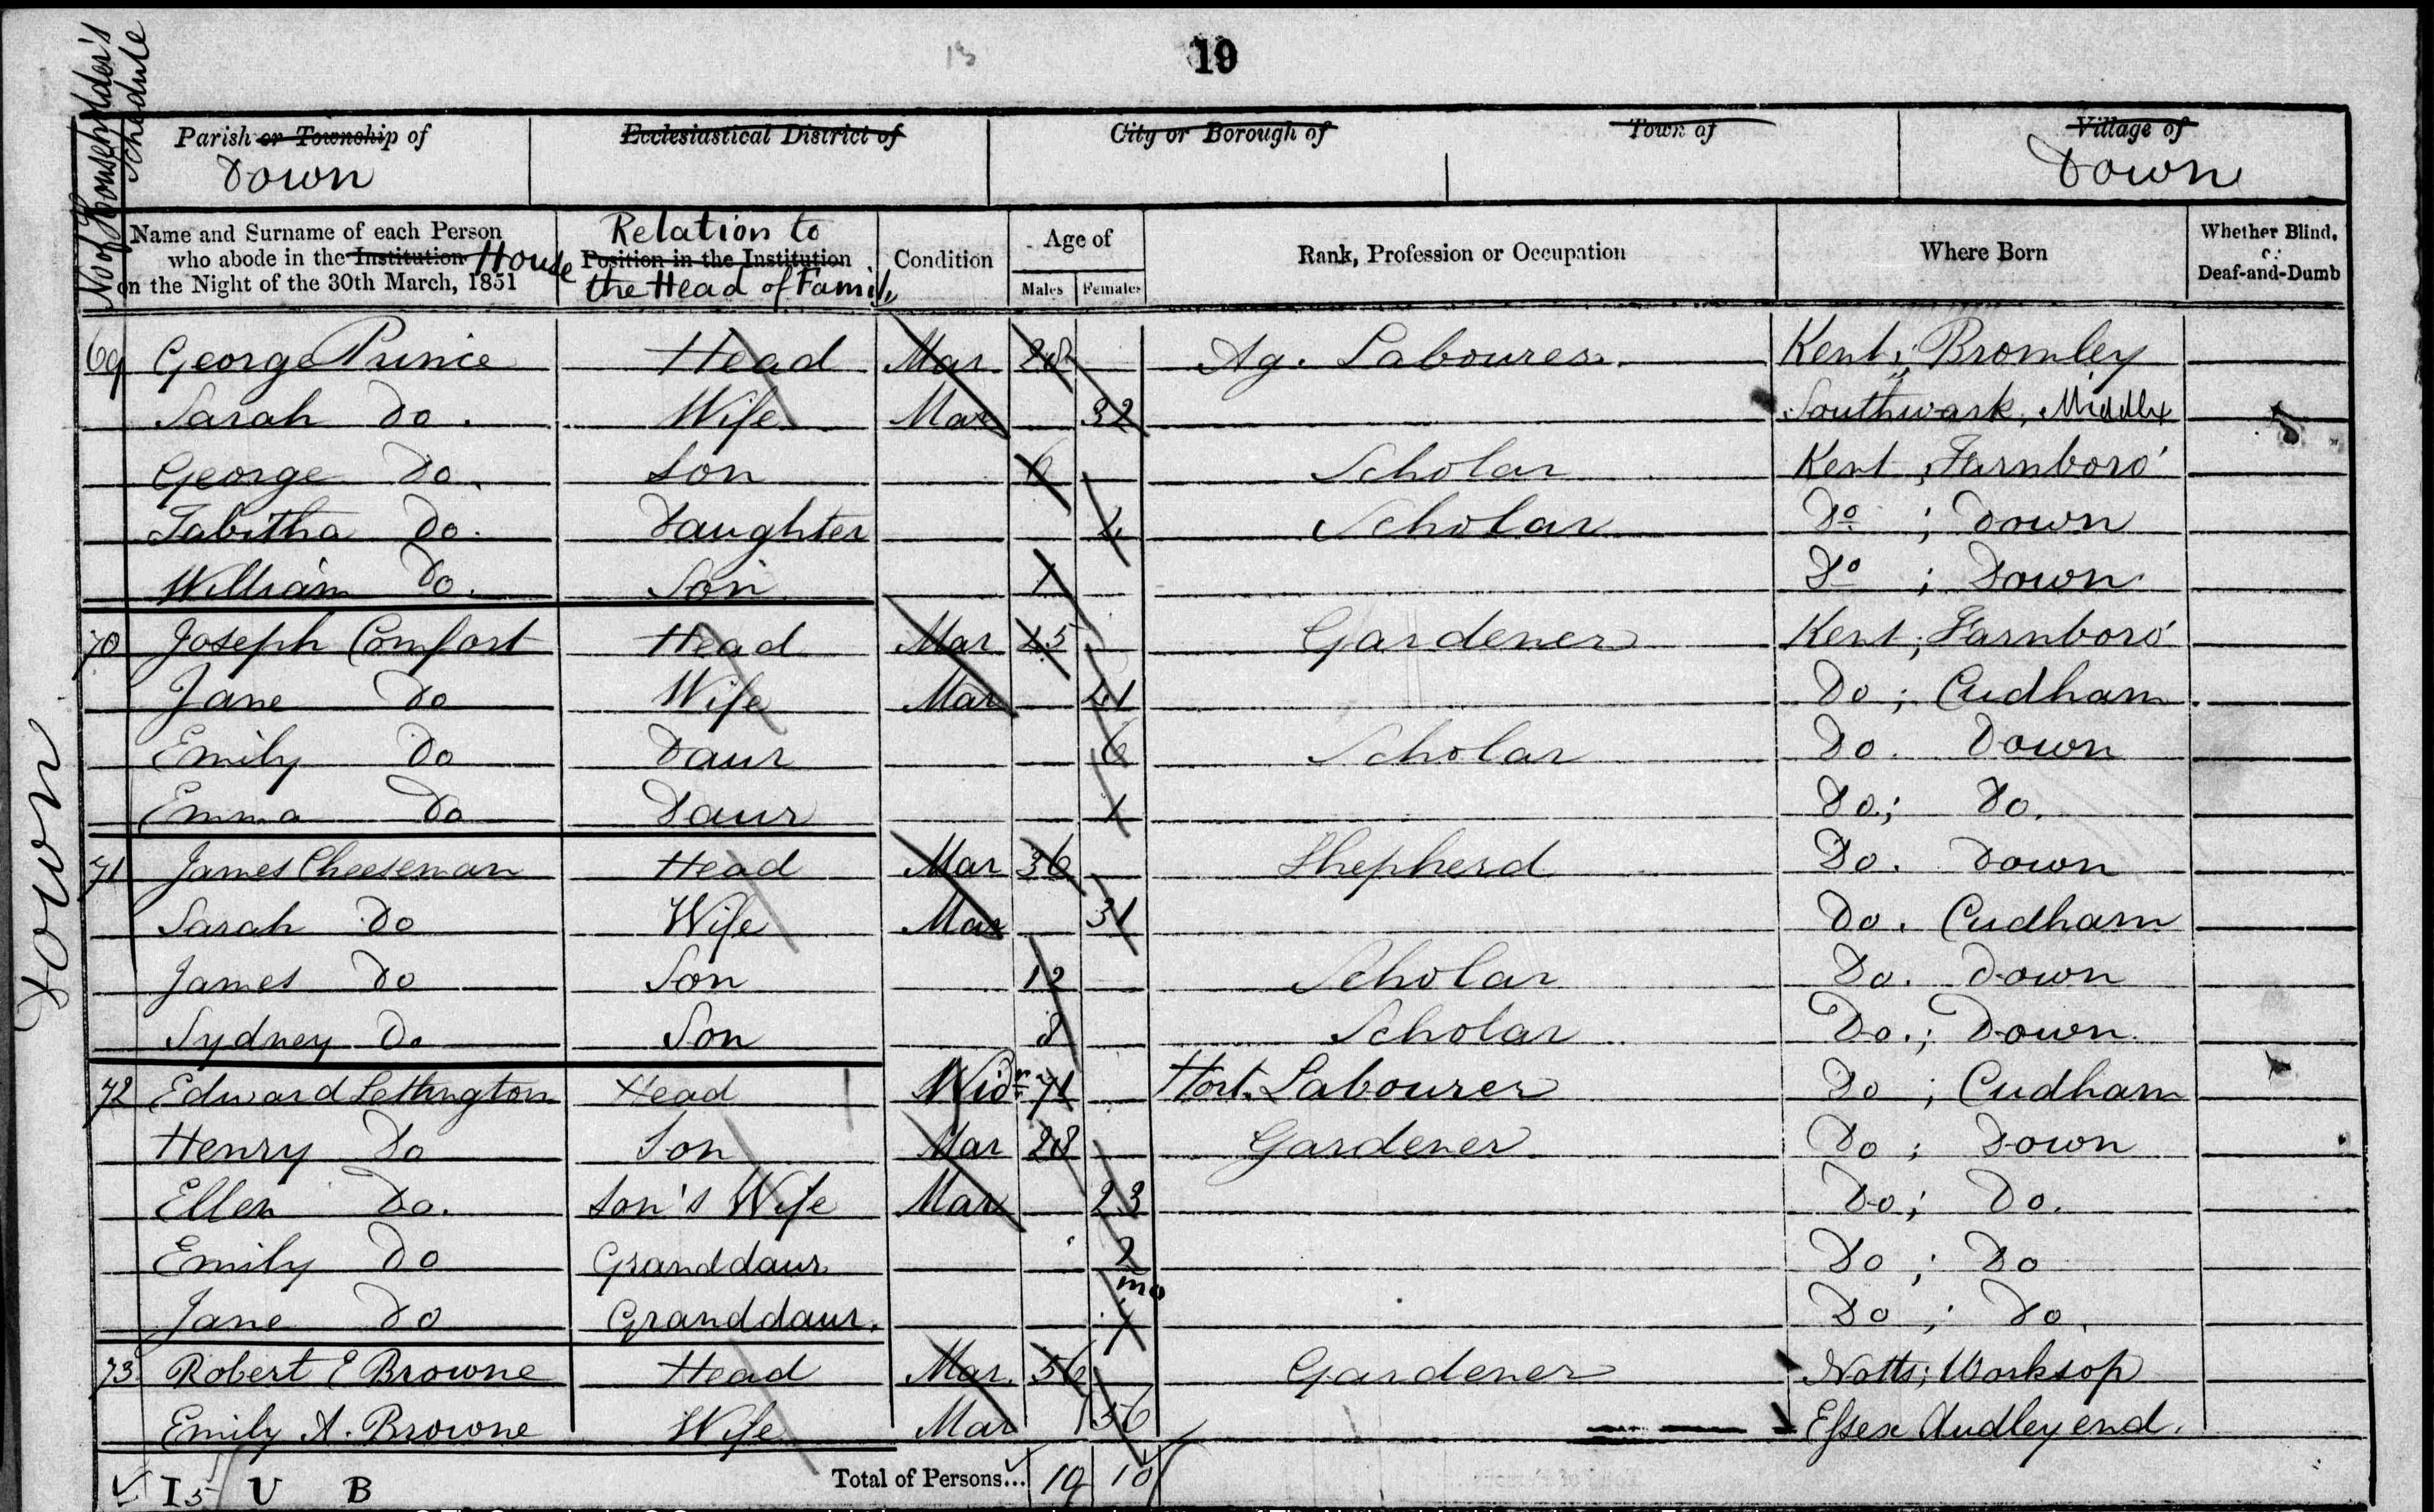 19
No of Householder's Schedule
Parish or Township of Down
Ecclesiastical District of
City or Borough of
Town of
Village of Down
Name and Surname of each Person who abode in the Institution House on the Night of the 30th March, 1851
Relation to Position in the Institution the Head of Family
Condition
Age of
Males Females
Rank, Profession or Occupation
Where Born
Whether Blind, or Deaf-and-Dumb
69 George Prince Head Mar 28 Ag. Labourer. Kent; Bromley
Sarah Do. Wife Mar 32 Southwark, Middlx
George Do. Son 6 Scholar Kent; Farnboro'
Tabitha Do. Daughter 4 Scholar Do; Down
William Do. Son 1 Do; Down
70 Joseph Comfort Head Mar 45 Gardener Kent; Farnboro'
Jane Do Wife Mar 41 Do; Cudham
Emily Do Daur 6 Scholar Do. Down
Emma Do Daur 1 Do; Do.
71 James Cheeseman Head Mar 36 Shepherd Do. Down
Sarah Do Wife Mar 31 Do. Cudham
James Do Son 12 Scholar Do. Down
Sydney Do Son 8 Scholar Do.; Down.
72 Edward Lettington Head Widr 71 Hort. Labourer Do; Cudham
Henry Do Son Mar 28 Gardener Do; Down
Ellen Do. Son's Wife Mar 23 Do; Do.
Emily Do Granddaur 2 Do; Do
Jane Do Granddaur. mo 1 Do; Do.
73 Robert E Browne Head Mar. 56 Gardener Notts; Worksop
Emily A. Browne Wife Mar 56 Essex Audley end.
Total of Persons... 10 10
I 5 U B
Down